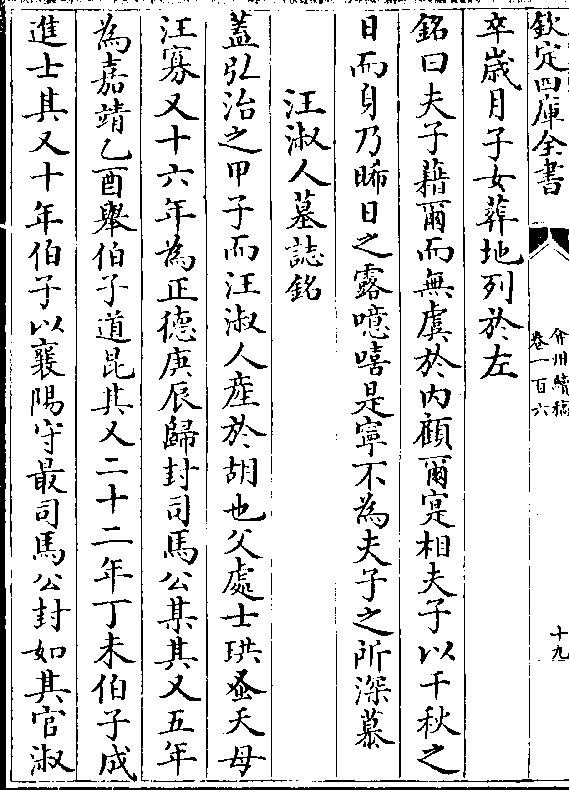 欽定四庫全書
弇州續稿
卷一百六
十九
卒歲月子女葬地列於左
銘曰夫子藉爾而無虞於内顧爾寔相夫子以千秋之
日而身乃晞日之露噫嘻是寧不為夫子之所深慕
汪淑人墓誌銘
蓋弘治之甲子而汪淑人産於胡也父處士珙蚤夭母
汪寡又十六年為正德庚辰歸封司馬公某其又五年
為嘉靖乙酉舉伯子道昆其又二十二年丁未伯子成
進士其又十年伯子以襄陽守最司馬公封如其官淑